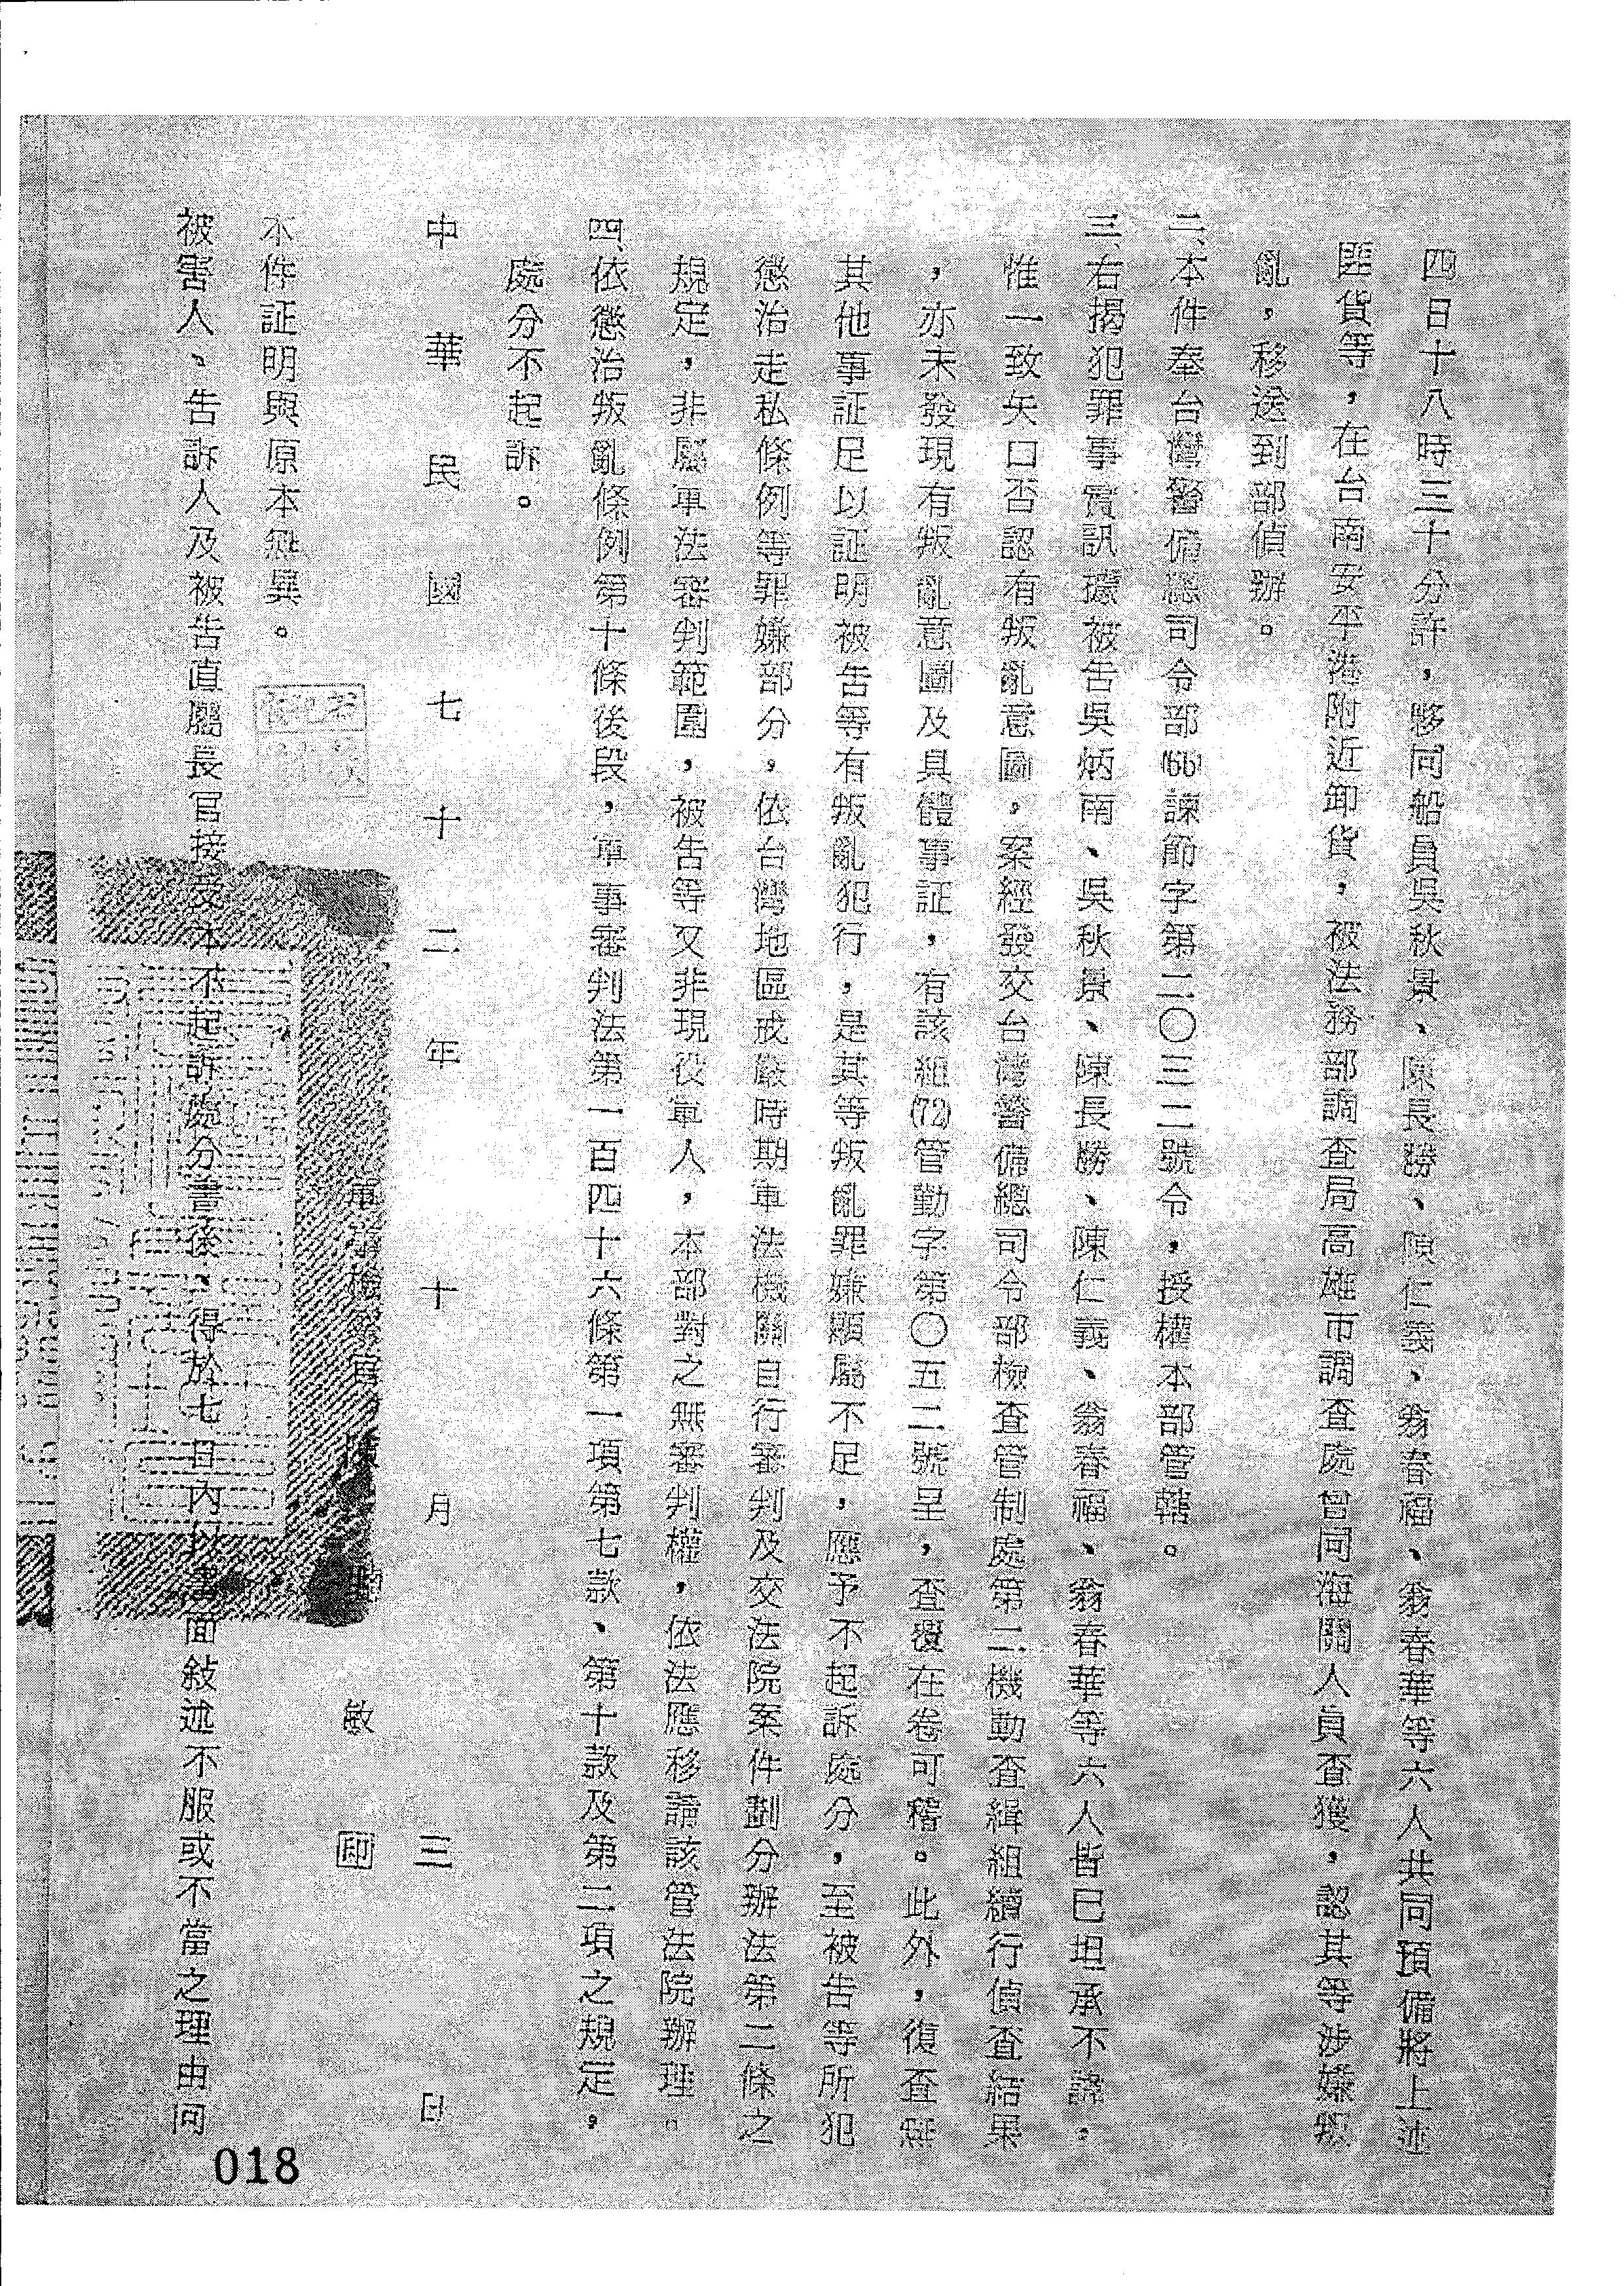 四日十八時三十分許，夥同船員吳秋景、陳長勝、陳仁義、翁春福、翁春華等六人共同預備將上述
匪貨等，在台南安平港附近卸貨，被法務部調查局高雄市調查處會同海關人員查獲，認其等涉嫌叛
亂，移送到部偵辦。
二、本件奉台灣警備總司令部(66)諫節字第二〇三二號令，授權本部管轄。
三、右揭犯罪事實訊據被告吳炳南、吳秋景、陳長勝、陳仁義、翁春福、翁春華等六人皆已坦承不諱，
惟一致矢口否認有叛亂意圖，案經發交台灣警備總司令部檢查管制處第二機動查緝組續行偵查結果
，亦未發現有叛亂意圖及具體事証，有該組(72)管勤字第〇五二號呈，查覆在卷可稽。此外，復查無
其他事証足以証明被告等有叛亂犯行，是其等叛亂罪嫌顯屬不足，應予不起訴處分，至被告等所犯
懲治走私條例等罪嫌部分，依台灣地區戒嚴時期軍法機關自行審判及交法院案件劃分辦法第二條之
規定，非屬軍法審判範圍，被告等又非現役軍人，本部對之無審判權，依法應移請該管法院辦理。
四、依懲治叛亂條例第十條後段，軍事審判法第一百四十六條第一項第七款、第十款及第二項之規定，
處分不起訴。
中華民國七十二年十月三日
軍事檢察官陳敏印
本件証明與原本無異。
被害人、告訴人及被告直屬長官接受本不起訴處分書後，得於七日內以書面敍述不服或不當之理由向
018